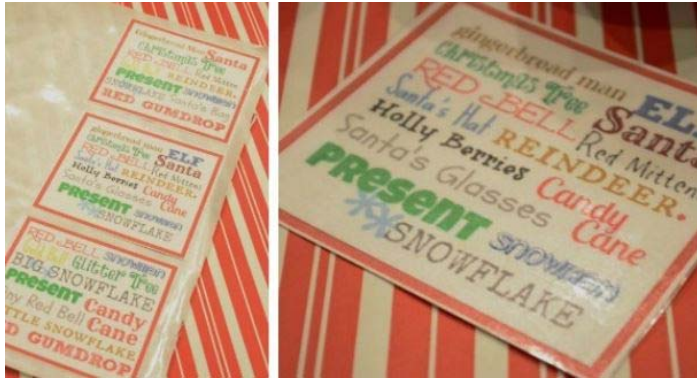 Gingerbread Man Santa
Christmas Tree
RED BELL Red Mitten
REINDEER
PRESENT SNOWMAN
SNOWFLAKE Santa's Bag
RED GUMDROP
gingerbread man
Christmas Tree ELF
RED BELL Santa
Santa's Hat Red Mittens
REINDEER
Holly Berries Candy
Santa's Glasses Cane
PRESENT SNOWMAN
SNOWFLAKE
RED BELL SNOWMAN
Glitter Tree
BIG SNOWFLAKE
PRESENT Candy
ny Red Bell Cane
TTLE SNOWFLAKE
D GUMDROP
gingerbread man
Christmas Tree ELF
RED BELL Santa
Santa's Hat Red Mitten
REINDEER
Holly Berries
Santa's Glasses Candy
PRESENT Cane
SNOWMAN
SNOWFLAKE